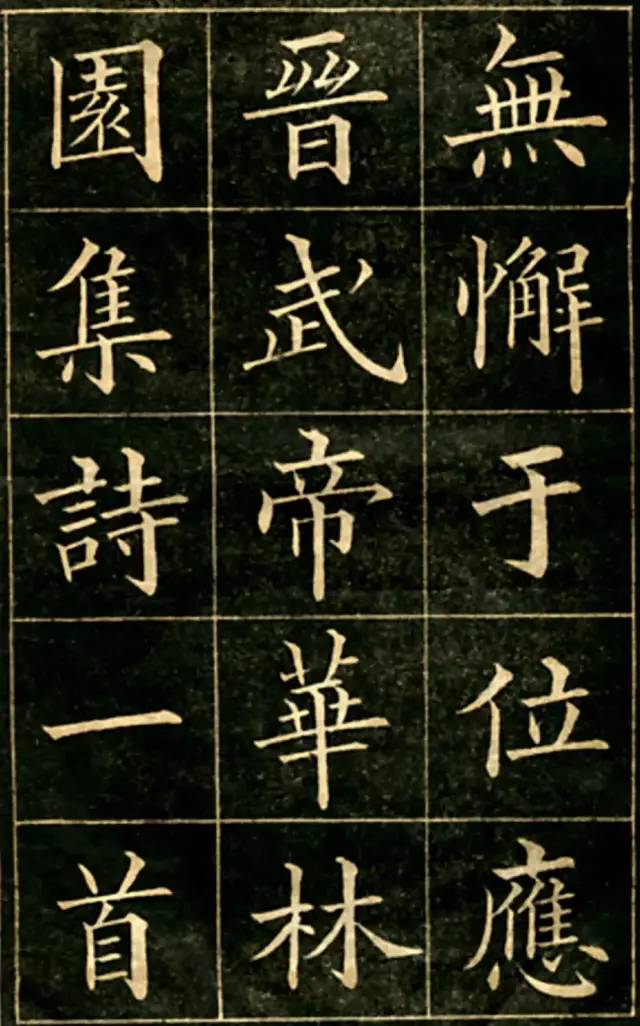 無懈于位應
晉武帝華林
園集詩一首